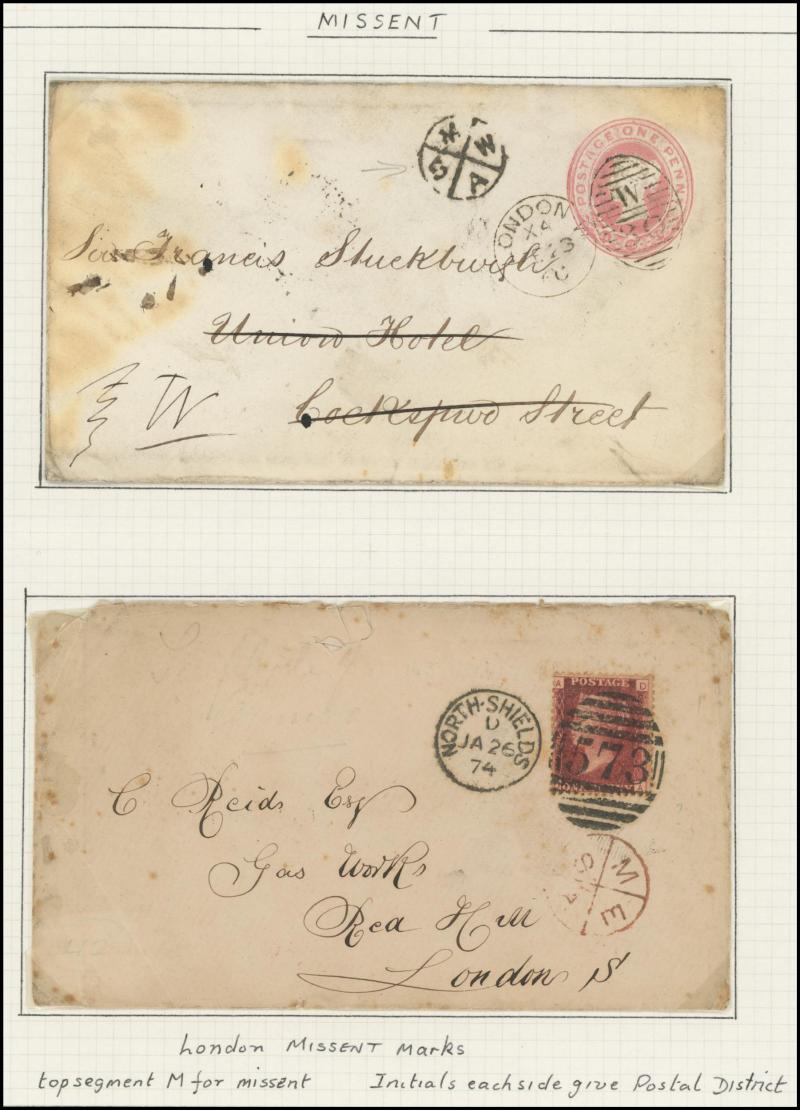 MISSENT
M
W W
S A
POSTAGE ONE PENNY
W
LONDON
X4
23
70
Sir Francis Stuckburgh
Union Hotel
W
Cockspur Street
A POSTAGE D
NORTH-SHIELDS
D
JA 26
74
573
C Reids Esq
Gas Works
Red Hill
London S
M
S E
London MISSENT Marks
top segment M for missent Initials each side give Postal District